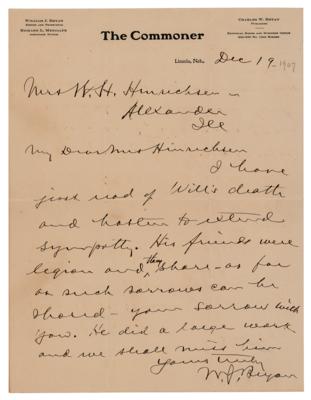 WILLIAM J. BRYAN
EDITOR AND PROPRIETOR
RICHARD L. METCALFE
ASSOCIATE EDITOR
The Commoner
CHARLES W. BRYAN
PUBLISHER
Lincoln, Neb., Dec 19 1907
Mrs W. H. Hinrichsen
Alexander
Ill
My Dear Mrs Hinrichsen
I have
just read of Will's death
and hasten to extend
sympathy. His friends were
legion and they share - as far
as such sorrows can be
shared - your sorrow with
you. He did a large work
and we shall miss him
Yours truly
W. J. Bryan